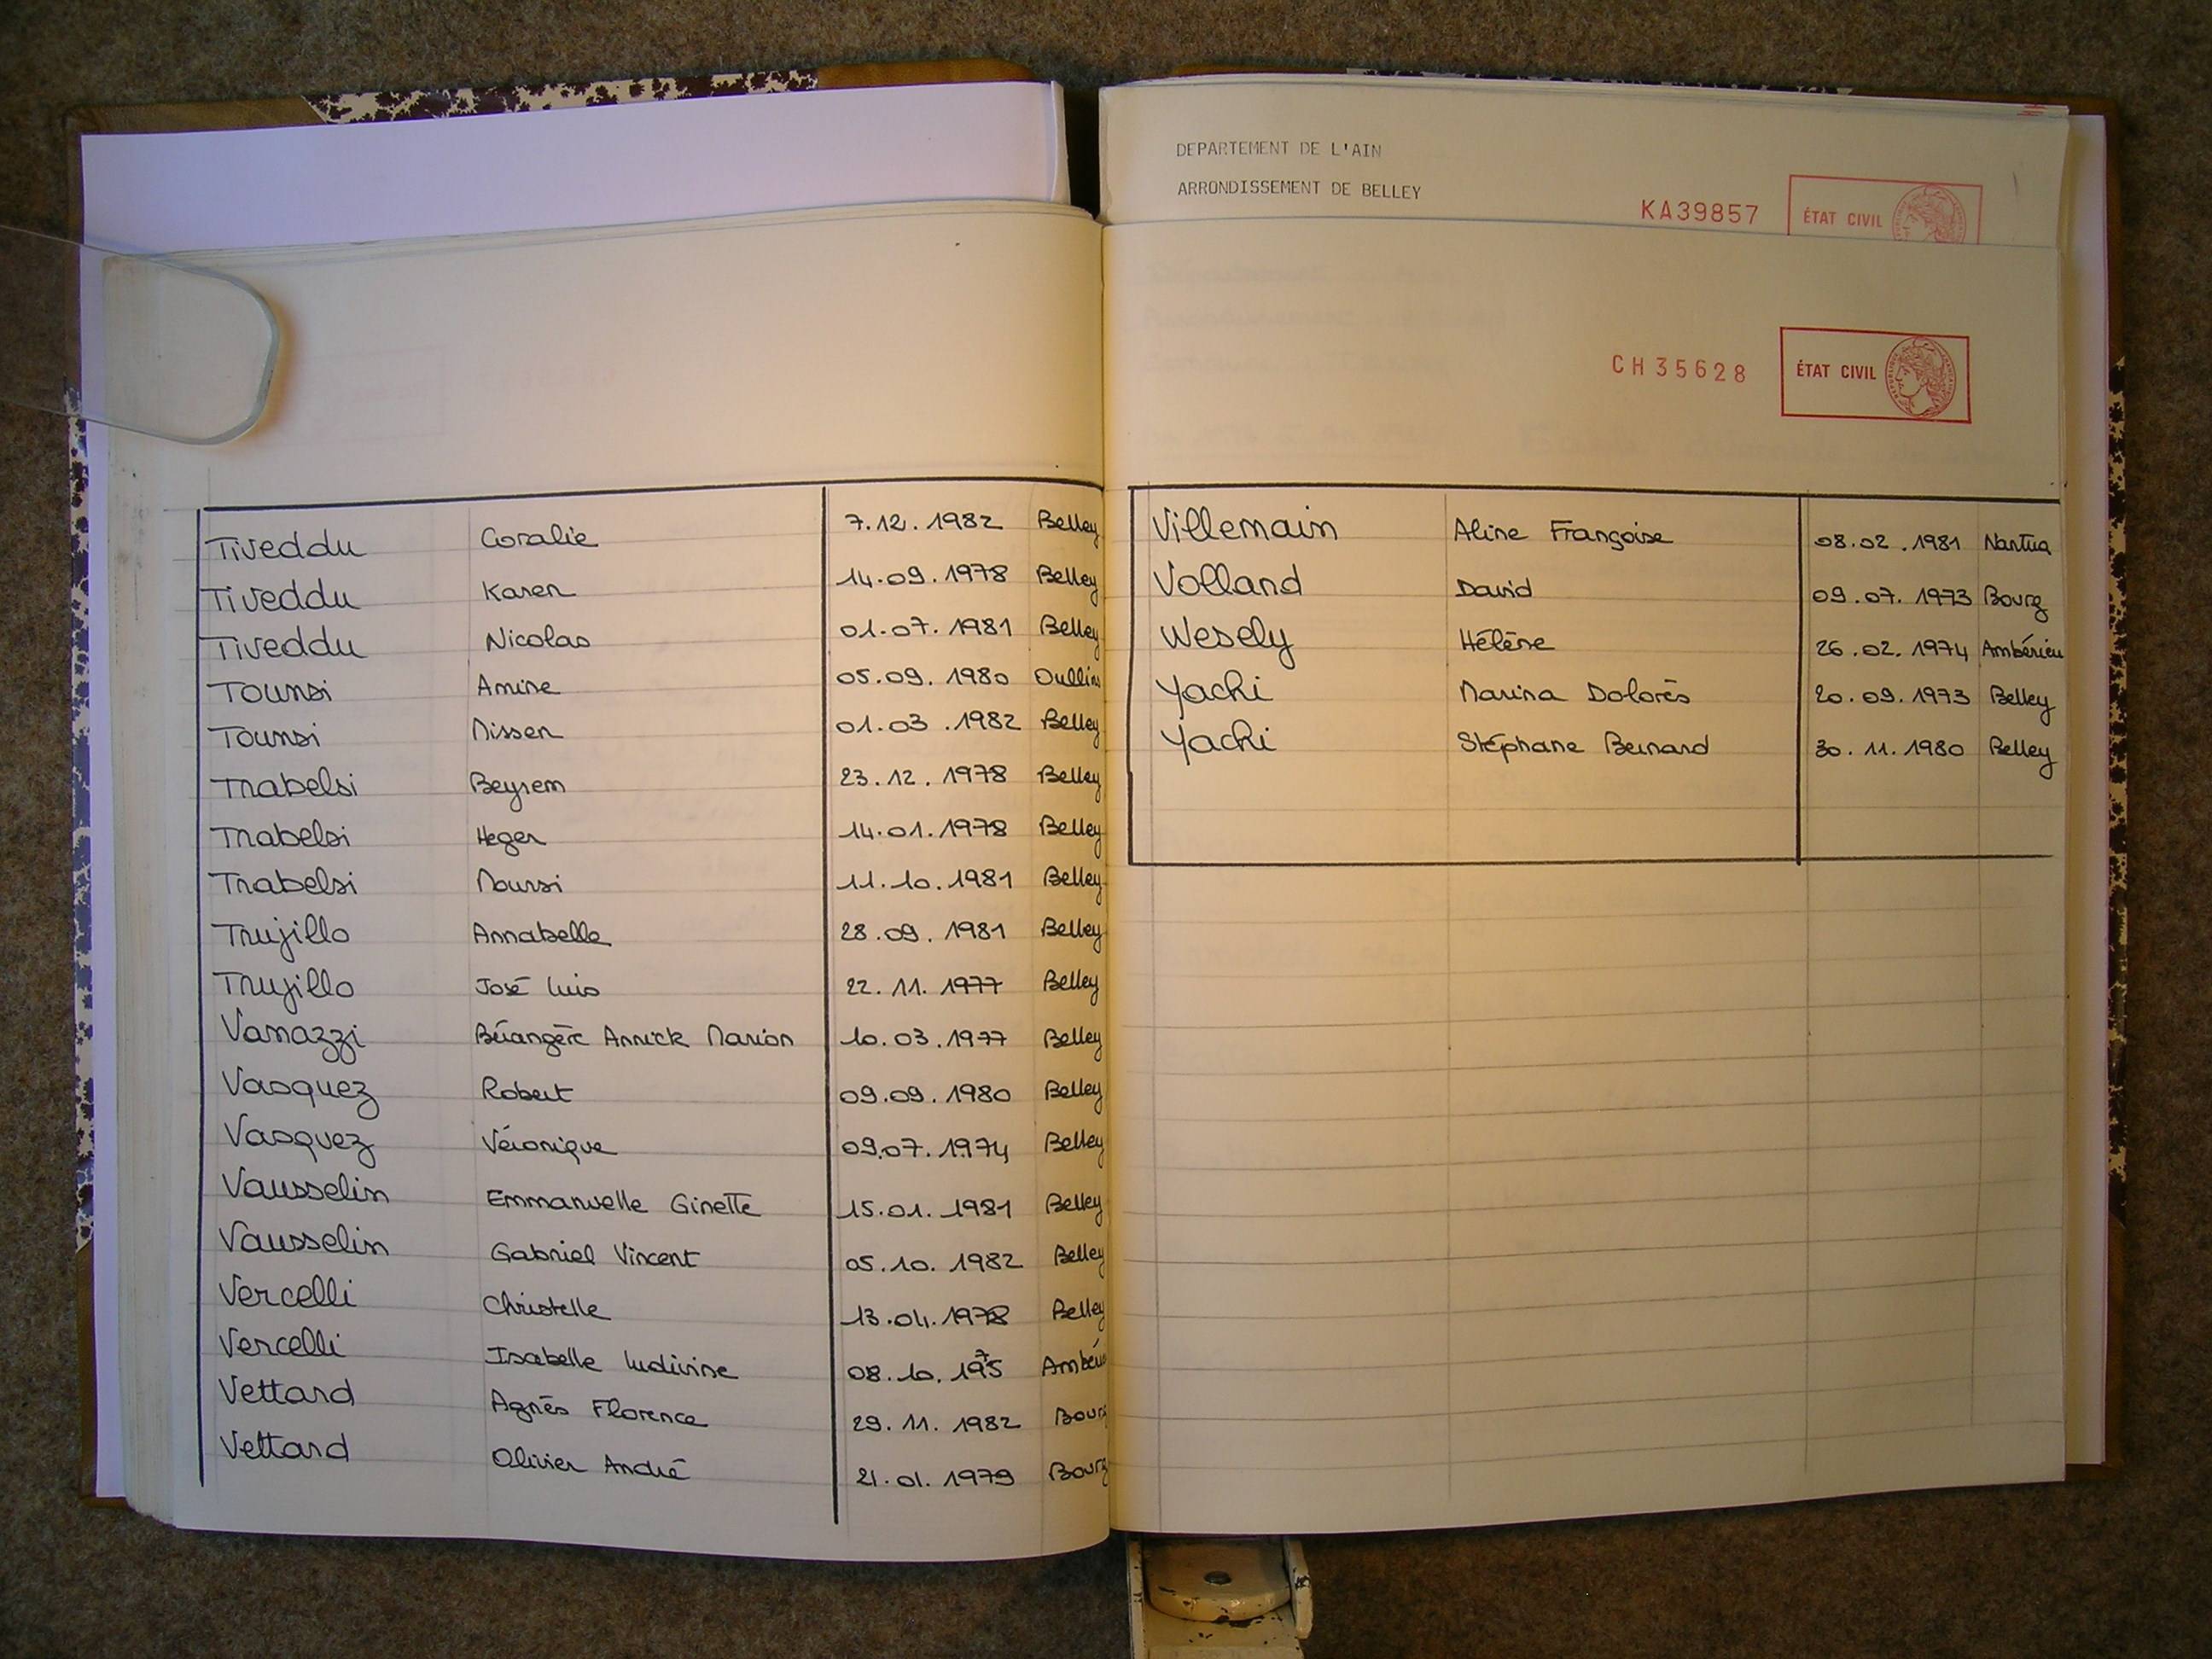 Tiveddu Coralie 7.12.1982 Belley
Tiveddu Karen 14.09.1978 Belley
Tiveddu Nicolas 01.07.1981 Belley
Tounsi Amine 05.09.1980 Oullins
Tounsi Nissen 01.03.1982 Belley
Trabelsi Beyrem 23.12.1978 Belley
Trabelsi Heger 14.01.1978 Belley
Trabelsi Noursi 11.10.1981 Belley
Trujillo Annabelle 28.09.1981 Belley
Trujillo José Luis 22.11.1977 Belley
Vanazzi Bérangère Annick Marion 10.03.1977 Belley
Vasquez Robert 09.09.1980 Belley
Vasquez Véronique 09.07.1974 Belley
Vausselin Emmanuelle Ginette 15.01.1981 Belley
Vausselin Gabriel Vincent 05.10.1982 Belley
Vercelli Christelle 13.04.1978 Belley
Vercelli Isabelle Ludivine 08.10.1975 Ambéri
Vettard Agnès Florence 29.11.1982 Bourg
Vettard Olivier André 21.01.1979 Bourg
DEPARTEMENT DE L'AIN
ARRONDISSEMENT DE BELLEY
KA39857 ÉTAT CIVIL
CH35628 ÉTAT CIVIL
Villemain Aline Françoise 08.02.1981 Nantua
Volland David 09.07.1973 Bourg
Wesely Hélène 26.02.1974 Ambérieu
Yachi Marina Dolorès 20.09.1973 Belley
Yachi Stéphane Bernard 30.11.1980 Belley